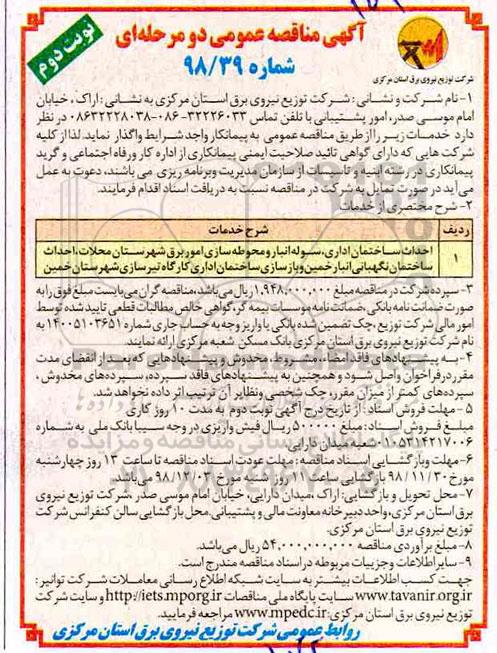 نوبت دوم
آگهی مناقصه عمومی دو مرحله‌ای
شماره ۹۸/۳۹
شرکت توزیع نیروی برق استان مرکزی
۱- نام شرکت و نشانی: شرکت توزیع نیروی برق استان مرکزی به نشانی: اراک، خیابان
امام موسی صدر، امور پشتیبانی با تلفن تماس ۳۲۲۲۶۰۳۳-۰۸۶ - ۰۸۶۳۲۲۲۸۰۳۸ در نظر
دارد خدمات زیر را از طریق مناقصه عمومی به پیمانکار واجد شرایط واگذار نماید. لذا از کلیه
شرکت هایی که دارای گواهی تائید صلاحیت ایمنی پیمانکاری از اداره کار ورفاه اجتماعی و گرید
پیمانکاری در رشته ابنیه و تاسیسات از سازمان مدیریت وبرنامه ریزی می باشند، دعوت به عمل
می آید در صورت تمایل به شرکت در مناقصه نسبت به دریافت اسناد اقدام فرمایند.
۲- شرح مختصری از خدمات
ردیف شرح خدمات
۱ احداث ساختمان اداری، سوله انبار و محوطه سازی امور برق شهرستان محلات، احداث
ساختمان نگهبانی انبار خمین و بازسازی ساختمان اداری کارگاه تیرسازی شهرستان خمین
۳- سپرده شرکت در مناقصه مبلغ ۱,۹۴۸,۰۰۰,۰۰۰ ریال می باشد، مناقصه گران می بایست مبلغ فوق را به
صورت ضمانت نامه بانکی، ضمانت نامه موسسات بیمه گر، گواهی خالص مطالبات قطعی تایید شده توسط
امور مالی شرکت توزیع، چک تضمین شده بانکی یا واریز وجه به حساب جاری شماره ۱۴۰۰۵۱۰۳۶۵۱ به
نام شرکت توزیع نیروی برق استان مرکزی بانک مسکن شعبه مرکزی ارائه نمایند.
۴- به پیشنهادهای فاقد امضاء، مشروط، مخدوش و پیشنهادهایی که بعد از انقضای مدت
مقرر در فراخوان واصل شود و همچنین به پیشنهادهای فاقد سپرده، سپرده‌های مخدوش،
سپرده‌های کمتر از میزان مقرر، چک شخصی ونظایر آن ترتیب اثر داده نخواهد شد.
۵- مهلت فروش اسناد: از تاریخ درج آگهی نوبت دوم به مدت ۱۰ روز کاری
مبلغ فروش اسناد: مبلغ ۵۰۰۰۰۰ ریال فیش واریزی در وجه سیبا بانک ملی به شماره
شعبه میدان دارایی.
۶- مهلت وبازگشایی اسناد مناقصه: مهلت عودت اسناد مناقصه تا ساعت ۱۳ روز چهارشنبه
مورخ ۹۸/۱۱/۳۰ بازگشایی ساعت ۱۱ روز شنبه مورخ ۹۸/۱۲/۰۳ می باشد.
۷- محل تحویل و بازگشایی: اراک، میدان دارایی، خیابان امام موسی صدر، شرکت توزیع نیروی
برق استان مرکزی، واحد دبیرخانه معاونت مالی و پشتیبانی. محل بازگشایی سالن کنفرانس شرکت
توزیع نیروی برق استان مرکزی.
۸- مبلغ برآوردی مناقصه ۵۴,۰۰۰,۰۰۰,۰۰۰ ریال می‌باشد.
۹- سایر اطلاعات وجزییات مربوطه در اسناد مناقصه مندرج است.
جهت کسب اطلاعات بیشتر به سایت شبکه اطلاع رسانی معاملات شرکت توانیر:
www.tavanir.org.ir سایت پایگاه ملی مناقصات http://iets.mporg.ir و سایت شرکت
توزیع نیروی برق استان مرکزی: www.mpedc.ir مراجعه فرمایید.
روابط عمومی شرکت توزیع نیروی برق استان مرکزی